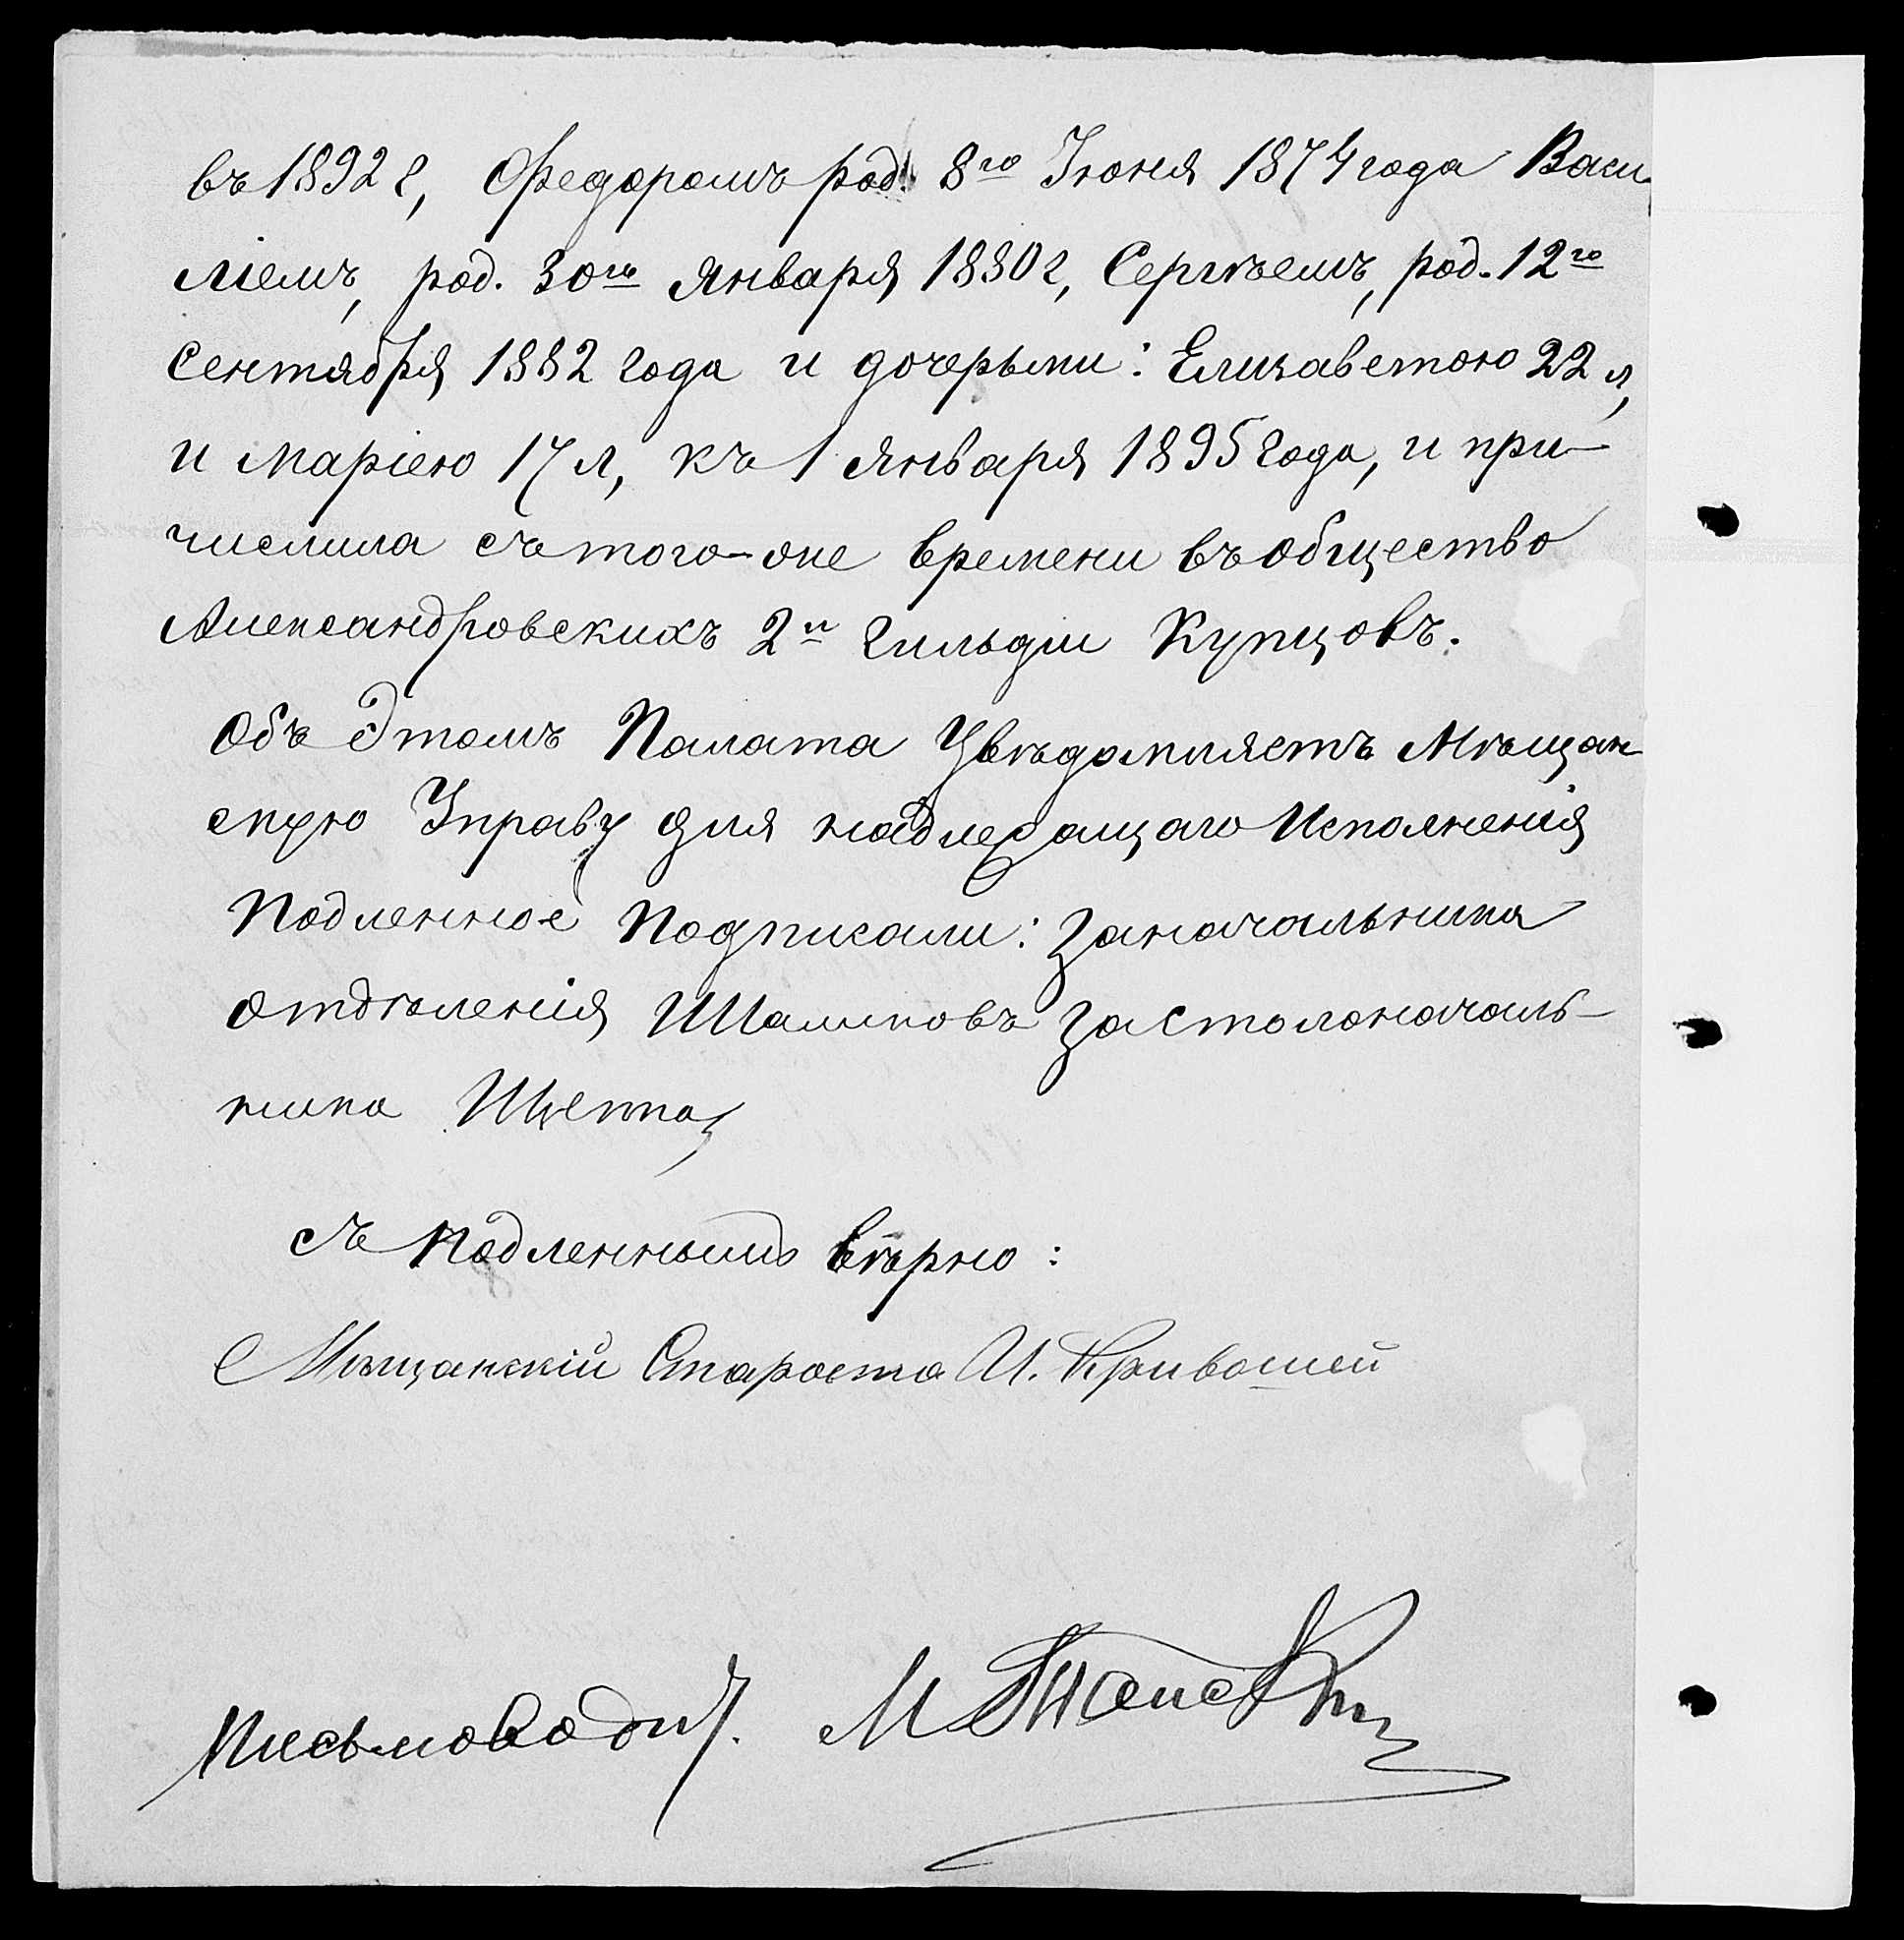 въ 1892 г, Федоромъ род. 8го Іюня 1874 года Васи
ліемъ, род. 30го Января 1880 г, Сергѣемъ, род. 12го
Сентября 1882 года и дочерьми: Елизаветою 22 л,
и Маріею 17 л, къ 1 Января 1895 года, и при-
числила съ того-же времени въ общество
Александровскихъ 2й Гильдіи Купцовъ.
Объ Этомъ Палата Увѣдомляетъ Мѣщан
скую Управу для надлежащаго Исполненія
Подленное Подписали: За начальника
Отдѣленія Шаликовъ За столоначаль-
ника Щепка
съ Подленнымъ вѣрно:
Мѣщанскій Староста И. Кривошей
Письмоводит. М